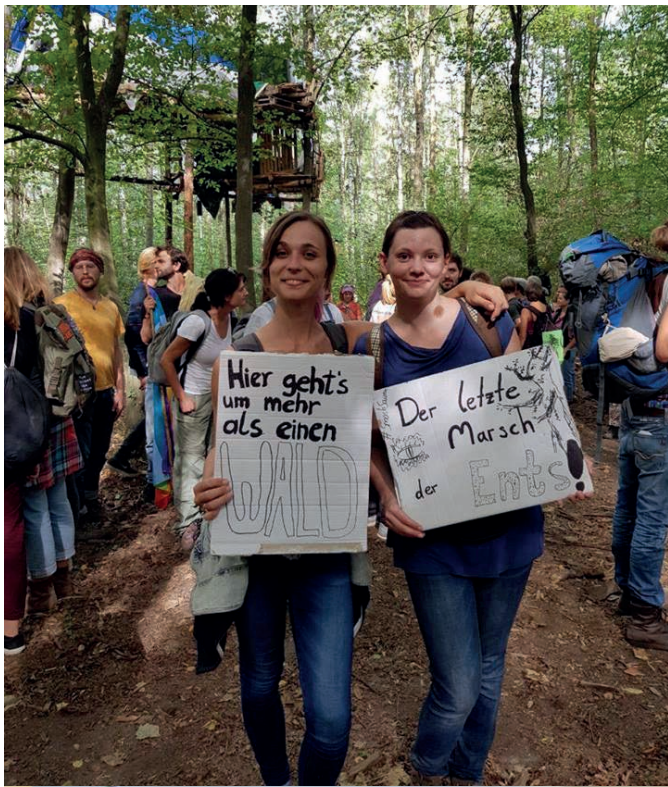 Hier geht's
um mehr
als einen
WALD
Der letzte
Marsch
der Ents!